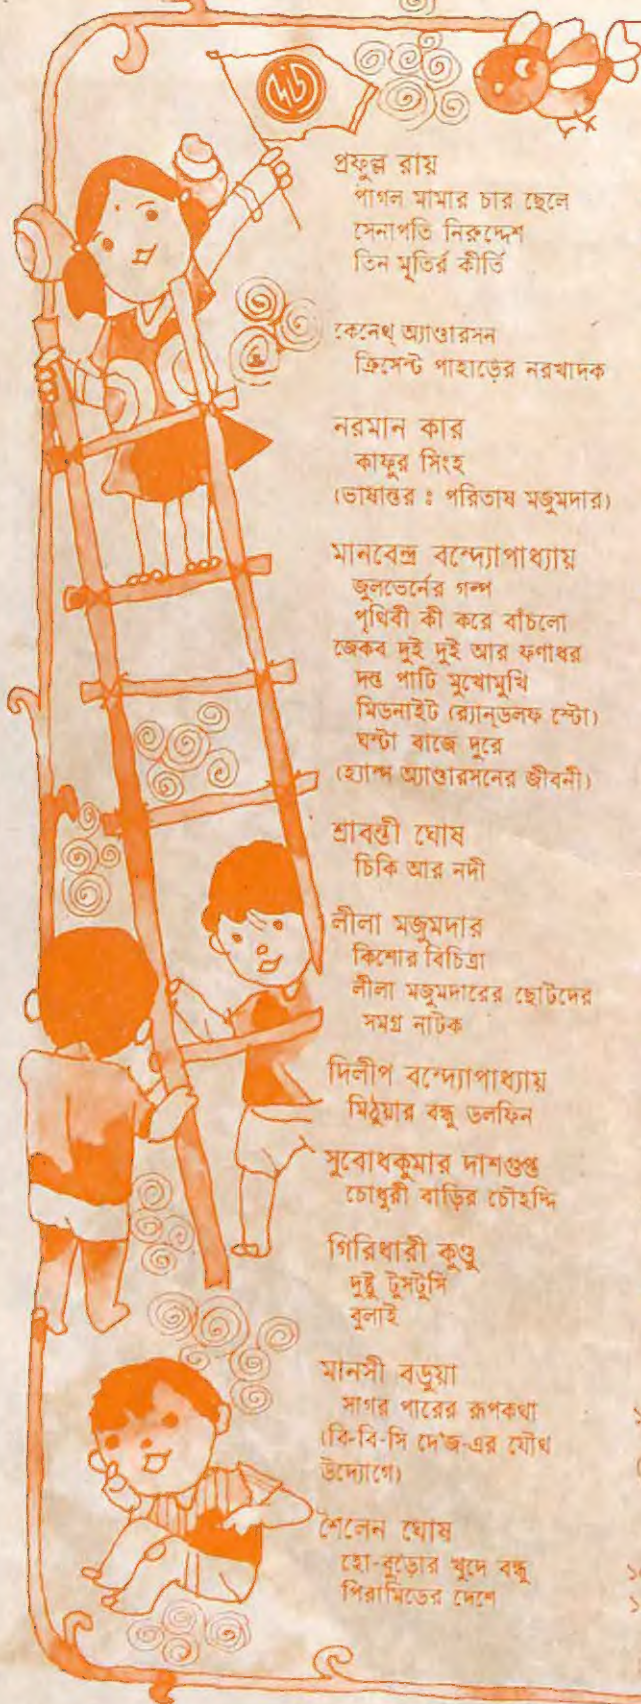 দে'জ
প্রফুল্ল রায়
পাগল মামার চার ছেলে
সেনাপতি নিরুদ্দেশ
তিন মূর্তির কীর্তি
কেনেথ্ অ্যাণ্ডারসন
ক্রিসেন্ট পাহাড়ের নরখাদক
নরমান কার
কাফুর সিংহ
(ভাষান্তর ঃ পরিতোষ মজুমদার)
মানবেন্দ্র বন্দ্যোপাধ্যায়
জুলভের্নের গল্প
পৃথিবী কী করে বাঁচলো
জেকব দুই দুই আর ফণাধর
দন্ত পাটি মুখোমুখি
মিডনাইট (র‍্যান্ডলফ স্টো)
ঘন্টা বাজে দূরে
(হ্যান্স অ্যাণ্ডারসনের জীবনী)
শ্রাবন্তী ঘোষ
চিকি আর নদী
লীলা মজুমদার
কিশোর বিচিত্রা
লীলা মজুমদারের ছোটদের
সমগ্র নাটক
দিলীপ বন্দ্যোপাধ্যায়
মিঠুয়ার বন্ধু ডলফিন
সুবোধকুমার দাশগুপ্ত
চৌধুরী বাড়ির চৌহদ্দি
গিরিধারী কুণ্ডু
দুষ্টু টুসটুসি
বুলাই
মানসী বড়ুয়া
সাগর পারের রূপকথা
(বি-বি-সি দে'জ-এর যৌথ
উদ্যোগে)
শৈলেন ঘোষ
হো-বুড়োর খুদে বন্ধু
পিরামিডের দেশে